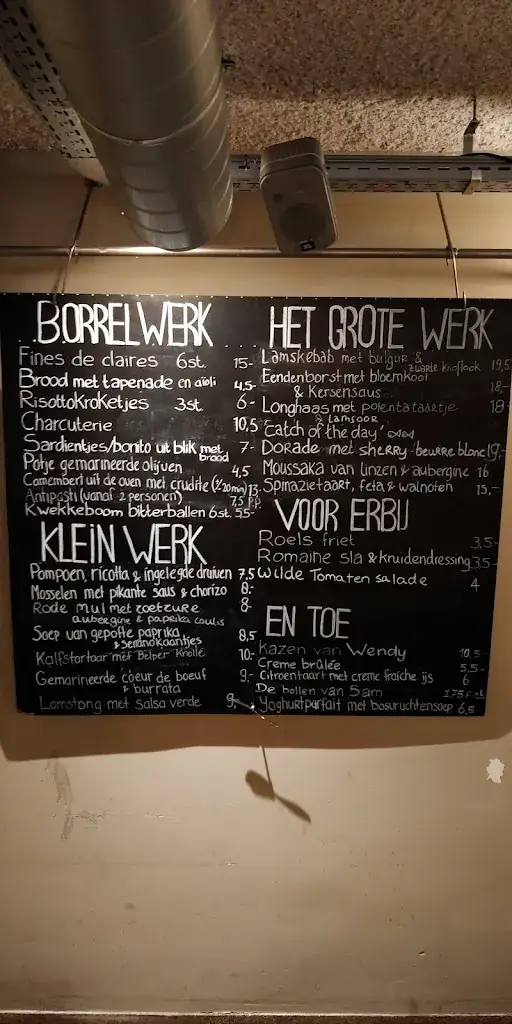 BORRELWERK
Fines de claires 6st. 15-
Brood met tapenade en aïoli 4,5-
Risottokroketjes 3st. 6-
Charcuterie 10,5
Sardientjes/bonito uit blik met brood 7-
Potje gemarineerde olijven 4,5
Camembert uit de oven met crudité (½ 20 min) 13-
Antipasti (vanaf 2 personen) 7,5 p.p.
Kwekkeboom bitterballen 6st. 5,5-
KLEIN WERK
Pompoen, ricotta & ingelegde druiven 7,5
Mosselen met pikante saus & chorizo 8-
Rode Mul met zoetzure 8-
aubergine & paprika coulis
Soep van gepofte paprika 8,5
& Serranokaantjes
Kalfstartaar met Belper Knolle 10-
Gemarineerde coeur de boeuf 9,-
& burrata
Lamstong met salsa verde 9,-
HET GROTE WERK
Lamskebab met bulgur &
zwarte knoflook 19,5
Eendenborst met bloemkool
& Kersensaus 18,-
Longhaas met polentataartje 18-
& lamsoor
'Catch of the day'
Dorade met sherry-beurre blanc 19,-
Moussaka van linzen & aubergine 16
Spinazietaart, feta & walnoten 15,-
VOOR ERBIJ
Roels friet 3,5-
Romaine sla & kruidendressing 3,5-
Wilde Tomaten salade 4
EN TOE
Kazen van Wendy 10,5-
Creme brûlée 5,5-
Citroentaart met creme fraîche ijs 6
De bollen van Sam 1,75 p.st.
Yoghurtparfait met bosvruchtensoep 6,5